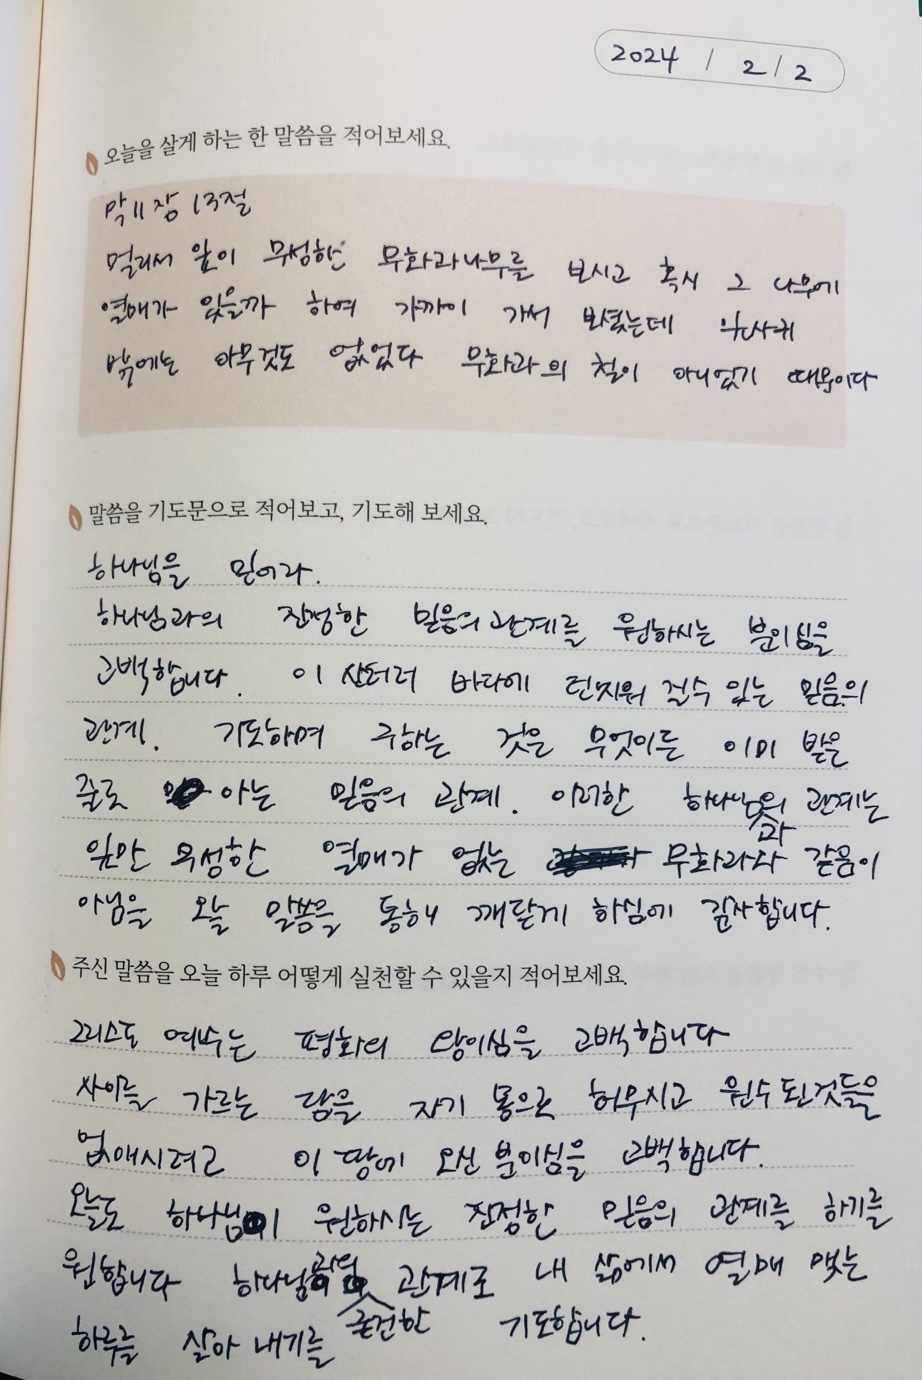 2024 / 2 / 2
오늘을 살게 하는 한 말씀을 적어보세요.
막 11장 13절
멀리서 잎이 무성한 무화과나무를 보시고 혹시 그 나무에
열매가 있을까 하여 가까이 가서 보셨는데 잎사귀
밖에는 아무것도 없었다 무화과의 철이 아니었기 때문이다
말씀을 기도문으로 적어보고, 기도해 보세요.
하나님을 믿어라.
하나님과의 진정한 믿음의 관계를 원하시는 분이심을
고백합니다. 이 산더러 바다에 던지워 질수 있는 믿음의
관계. 기도하며 구하는 것은 무엇이든 이미 받은
줄로 아는 믿음의 관계. 이러한 하나님과의 관계는
잎만 무성한 열매가 없는 무화과와 같음이
아님을 오늘 말씀을 통해 깨닫게 하심에 감사합니다.
주신 말씀을 오늘 하루 어떻게 실천할 수 있을지 적어보세요.
그리스도 예수는 평화의 왕이심을 고백합니다
사이를 가르는 담을 자기 몸으로 허무시고 원수 된것들을
없애시려고 이 땅에 오신 분이심을 고백합니다.
오늘도 하나님이 원하시는 진정한 믿음의 관계를 하기를
원합니다 하나님과의 온전한 관계로 내 삶에서 열매 맺는
하루를 살아 내기를 기도합니다.